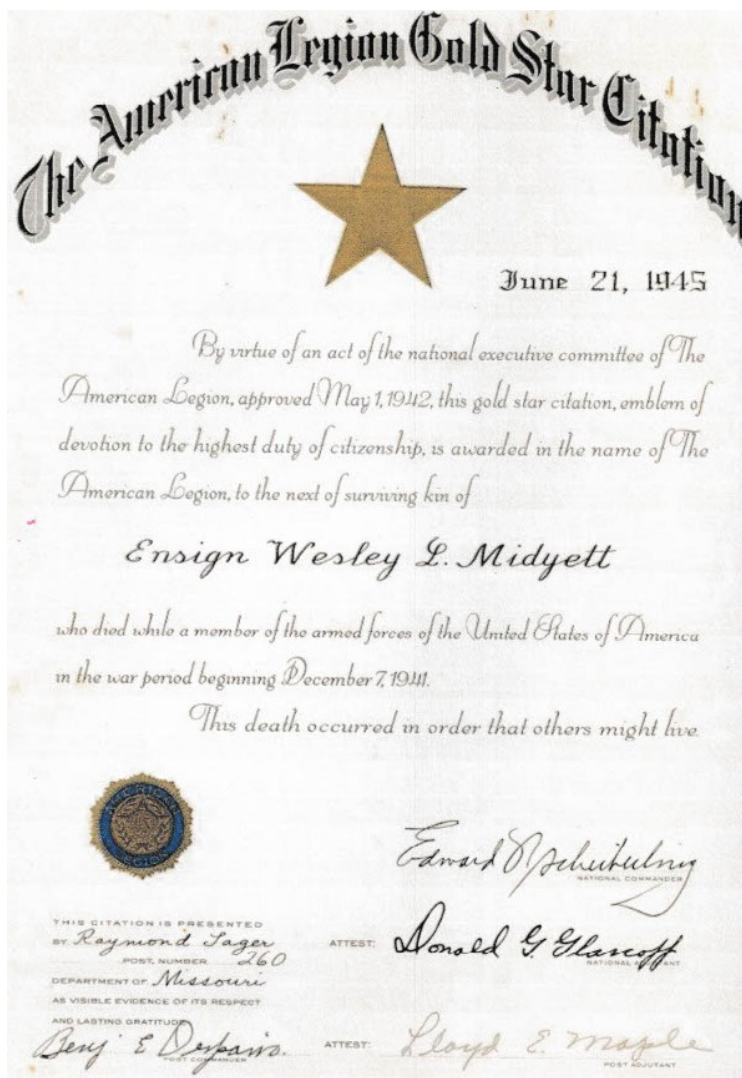 The American Legion Gold Star Citation
June 21, 1945
By virtue of an act of the national executive committee of The
American Legion, approved May 1, 1942, this gold star citation, emblem of
devotion to the highest duty of citizenship, is awarded in the name of The
American Legion, to the next of surviving kin of
Ensign Wesley L. Midyett
who died while a member of the armed forces of the United States of America
in the war period beginning December 7, 1941.
This death occurred in order that others might live.
AMERICAN
LEGION
Edward N Scheiberling
NATIONAL COMMANDER
THIS CITATION IS PRESENTED
BY Raymond Sager
POST, NUMBER 260
DEPARTMENT OF Missouri
AS VISIBLE EVIDENCE OF ITS RESPECT
AND LASTING GRATITUDE
ATTEST: Donald G. Glascoff
NATIONAL ADJUTANT
Benj E
POST COMMANDER
ATTEST: Lloyd E. Maple
POST ADJUTANT